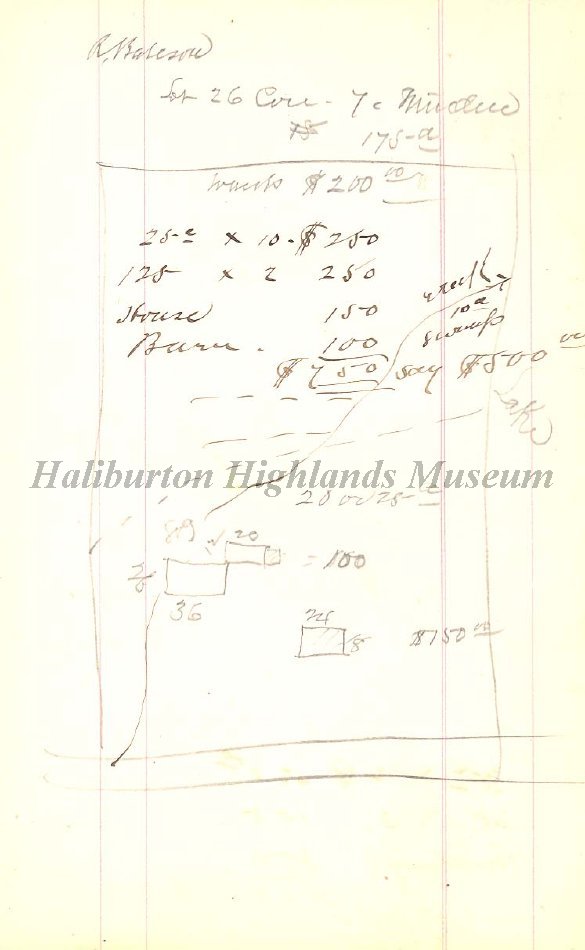 R. Bateson
Lot 26 Con - 7 - Minden
175-a
wants $200 00
25-a x 10 - $ 250
125 x 2 250
House 150
Barn . 100
$ 750 say $500 00
creek
10a
swamp
Lake
Haliburton Highlands Museum
20 or 25-a
20
= 100
26
36
24
18 $150 00